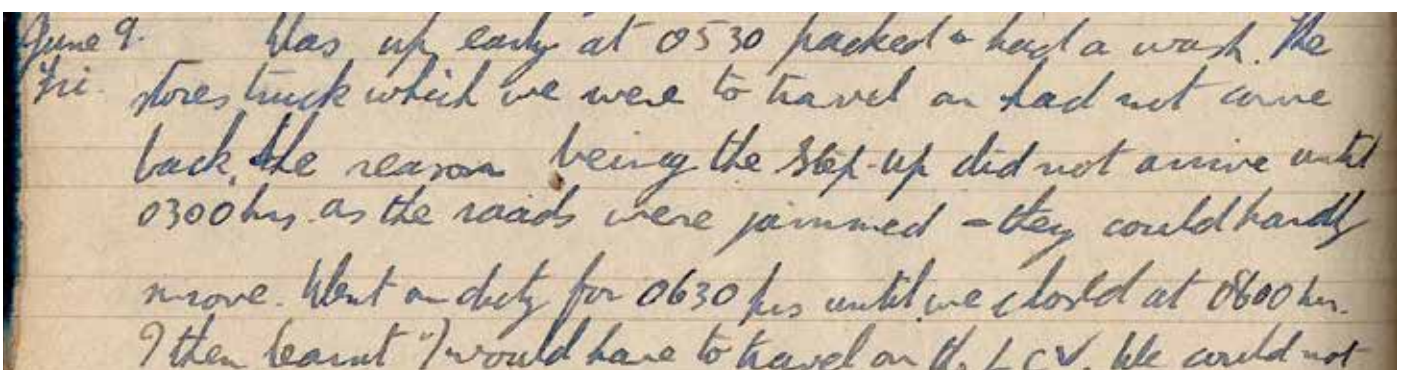 June 9. Was up early at 0530 packed & had a wash. The
Fri. stores truck which we were to travel on had not come
back, the reason being the step-up did not arrive until
0300 hrs. as the roads were jammed - they could hardly
move. Went on duty for 0630 hrs until we closed at 0800 hrs.
I then learnt I would have to travel on the L C V. We could not